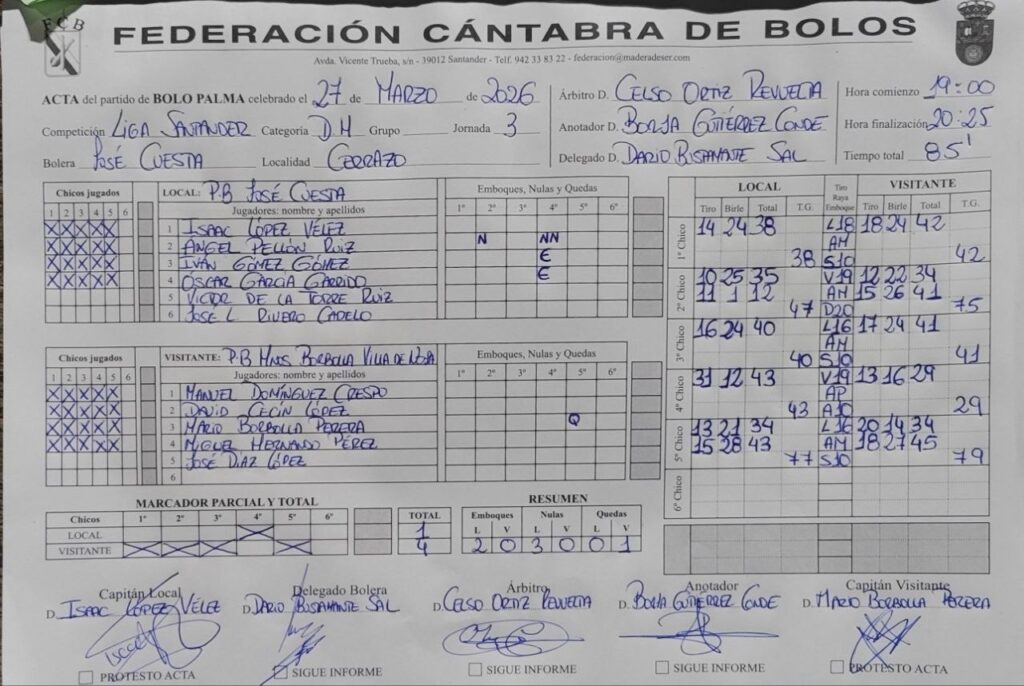 FCB
FEDERACIÓN CÁNTABRA DE BOLOS
Avda. Vicente Trueba, s/n - 39012 Santander - Telf. 942 33 83 22 - federacion@maderadeser.com
ACTA del partido de BOLO PALMA celebrado el 27 de MARZO de 2026
Competición LIGA SANTANDER Categoría D.H Grupo Jornada 3
Bolera JOSÉ CUESTA Localidad CERRAZO
Árbitro D. CELSO ORTIZ REVUELTA
Anotador D. BORJA GUTIÉRREZ CONDE
Delegado D. DARIO BUSTAMANTE SAL
Hora comienzo 19:00
Hora finalización 20:25
Tiempo total 85'
Chicos jugados LOCAL: P.B JOSÉ CUESTA Emboques, Nulas y Quedas
1 2 3 4 5 6 Jugadores: nombre y apellidos 1º 2º 3º 4º 5º 6º
X X X X X 1 ISAAC LÓPEZ VÉLEZ
X X X X X 2 ÁNGEL PELLÓN RUIZ N NN
X X X X X 3 IVÁN GÓMEZ GÓMEZ E
X X X X X 4 OSCAR GARCÍA GARRIDO E
5 VICTOR DE LA TORRE RUIZ
6 JOSE L RIVERO CADELO
Chicos jugados VISITANTE: P.B HNOS. BORBOLLA VILLA DE NOJA Emboques, Nulas y Quedas
1 2 3 4 5 6 Jugadores: nombre y apellidos 1º 2º 3º 4º 5º 6º
X X X X X 1 MANUEL DOMÍNGUEZ CRESPO
X X X X X 2 DAVID CECIN LÓPEZ
X X X X X 3 MARIO BORBOLLA PERERA Q
X X X X X 4 MIGUEL HERNANDO PÉREZ
5 JOSÉ DÍAZ LÓPEZ
6
MARCADOR PARCIAL Y TOTAL
Chicos 1º 2º 3º 4º 5º 6º TOTAL
LOCAL X 1
VISITANTE X X X X 4
RESUMEN
Emboques Nulas Quedas
L V L V L V
2 0 3 0 0 1
LOCAL Tiro Raya Emboque VISITANTE
Tiro Birle Total T.G. Tiro Birle Total T.G.
1º Chico 14 24 38 L18 18 24 42
AM
38 S10 42
2º Chico 10 25 35 V19 12 22 34
11 1 12 AM 15 26 41
47 D20 75
3º Chico 16 24 40 L16 17 24 41
AM
40 S10 41
4º Chico 31 12 43 V19 13 16 29
AP
43 A10 29
5º Chico 13 21 34 L16 20 14 34
15 28 43 AM 18 27 45
77 S10 79
6º Chico
Capitán Local Delegado Bolera Árbitro Anotador Capitán Visitante
D. ISAAC LÓPEZ VÉLEZ D. DARIO BUSTAMANTE SAL D. CELSO ORTIZ REVUELTA D. BORJA GUTIÉRREZ CONDE D. MARIO BORBOLLA PERERA
PROTESTO ACTA SIGUE INFORME SIGUE INFORME SIGUE INFORME PROTESTO ACTA